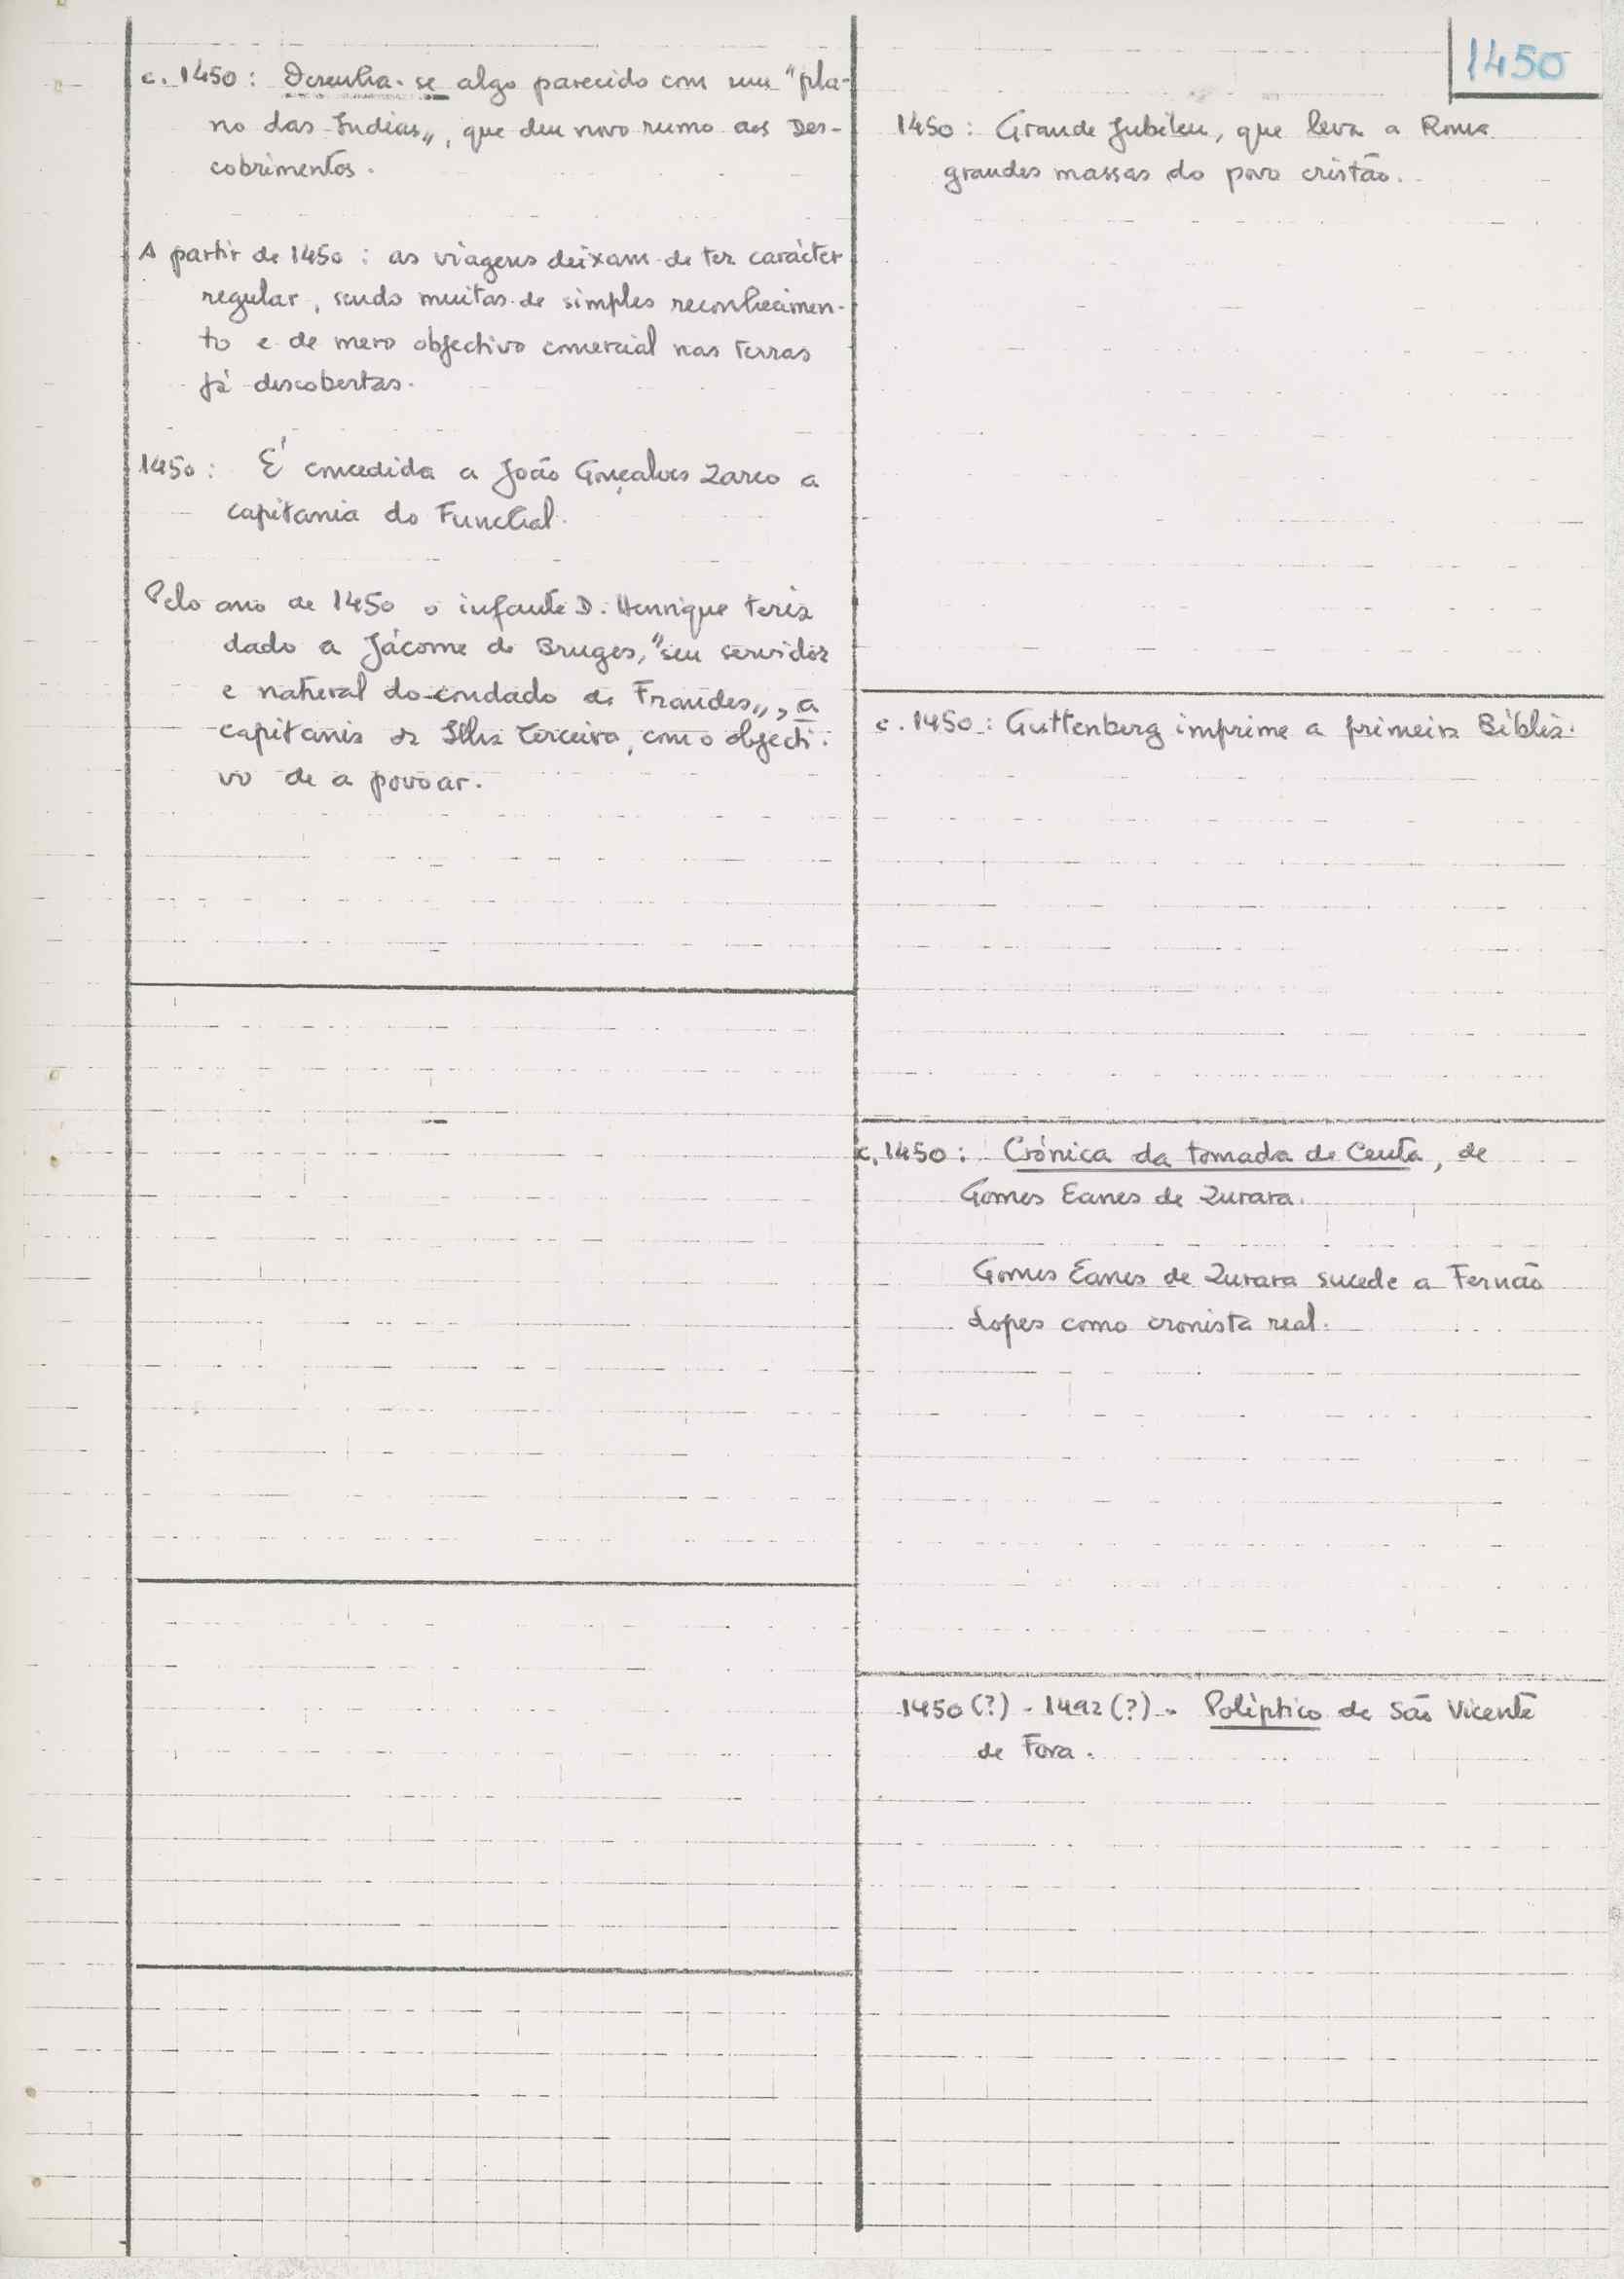 1450
c. 1450: Desenha-se algo parecido com um "pla-
no das Indias„, que deu novo rumo aos Des-
cobrimentos.
A partir de 1450: as viagens deixam de ter carácter
regular, sendo muitas de simples reconhecimen-
to e de mero objectivo comercial nas terras
já descobertas.
1450: É concedida a João Gonçalves Zarco a
capitania do Funchal.
Pelo ano de 1450 o infante D. Henrique teria
dado a Jácome de Bruges, "seu servidor
e natural do condado de Frandes„, a
capitania da Ilha Terceira, com o objecti-
vo de a povoar.
1450: Grande Jubileu, que leva a Roma
grandes massas do povo cristão.
c. 1450: Guttenberg imprime a primeira Bíblia.
c. 1450: Crónica da tomada de Ceuta, de
Gomes Eanes de Zurara.
Gomes Eanes de Zurara sucede a Fernão
Lopes como cronista real.
1450(?) - 1492(?) - Políptico de São Vicente
de Fora.